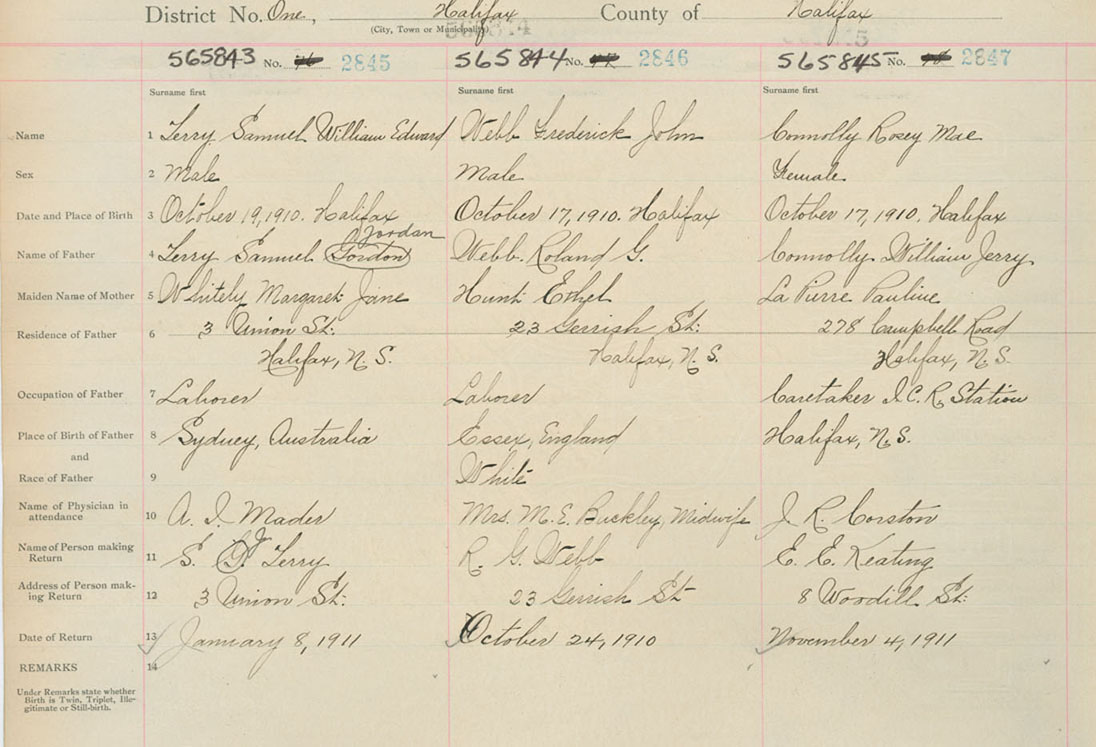 District No. One, Halifax County of Halifax
(City, Town or Municipality)
565843 No. 2845 565844 No. 2846 565845 No. 2847
Surname first Surname first Surname first
Name 1 Terry Samuel William Edward Webb Frederick John Connolly Rosey Mae
Sex 2 Male Male Female
Date and Place of Birth 3 October 19, 1910. Halifax October 17, 1910. Halifax October 17, 1910. Halifax
Jordan
Name of Father 4 Terry Samuel Gordon Webb. Roland G. Connolly William Jerry
Maiden Name of Mother 5 Whitely Margaret Jane Hunt Ethel La Pierre Pauline
Residence of Father 6 3 Union St. 23 Gerrish St. 278 Campbell Road
Halifax, N. S. Halifax, N. S. Halifax, N. S.
Occupation of Father 7 Laborer Laborer Caretaker I. C. R. Station
Place of Birth of Father 8 Sydney, Australia Essex, England Halifax, N. S.
and
Race of Father 9 White
Name of Physician in attendance 10 A. I. Mader Mrs. M. E. Buckley, Midwife J. R. Corston
Name of Person making Return 11 S. J. Terry R. G. Webb E. E. Keating
Address of Person making Return 12 3 Union St. 23 Gerrish St 8 Woodill St.
Date of Return 13 January 8, 1911 October 24, 1910 November 4, 1911
REMARKS 14
Under Remarks state whether
Birth is Twin, Triplet, Ille-
gitimate or Still-birth.